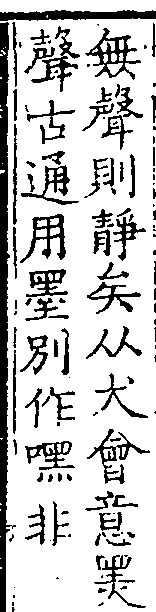 無聲則靜矣从犬會意黑
聲古通用墨別作嘿非